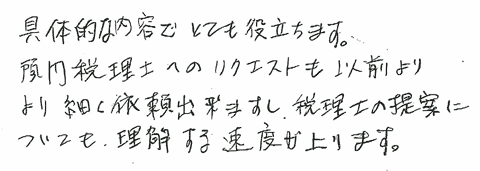 具体的な内容でとても役立ちます。
顧問税理士へのリクエストも以前より
より細く依頼出来ますし、税理士の提案に
ついても、理解する速度が上ります。